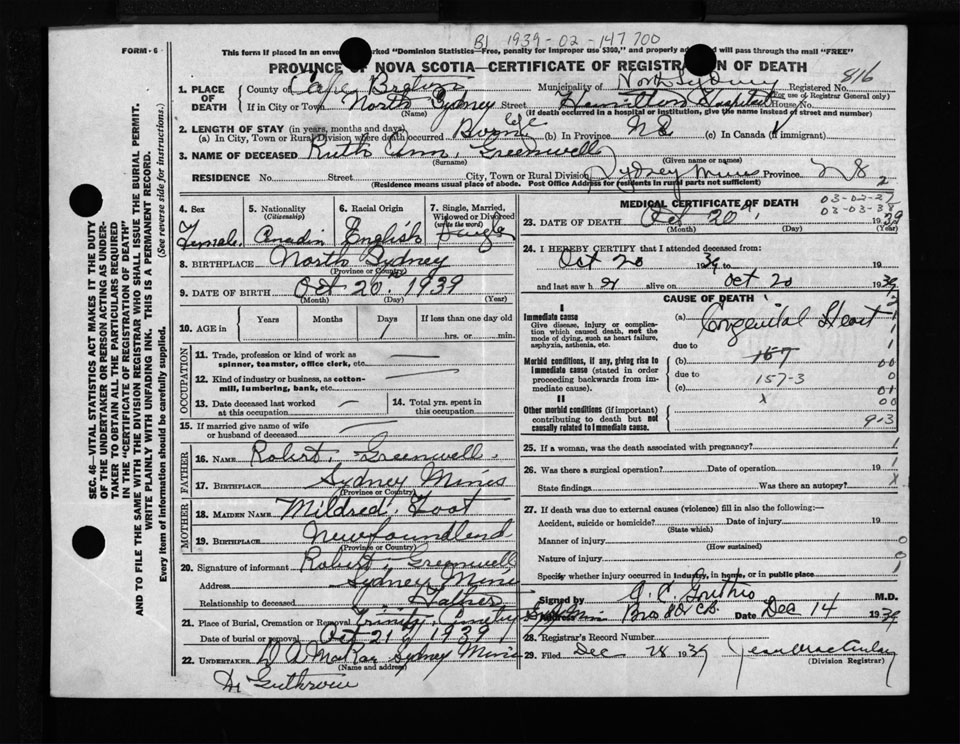 B1 1939-02-147700
FORM-6
This form if placed in an enve marked "Dominion Statistics—Free, penalty for Improper use $300," and properly ad will pass through the mail "FREE"
PROVINCE OF NOVA SCOTIA—CERTIFICATE OF REGISTRATION OF DEATH
816
1. PLACE OF DEATH
County of Cape Breton Municipality of North Sydney Registered No.
(For use of Registrar General only)
If in City or Town North Sydney Street Hamilton Hospital House No.
(Name) (If death occurred in a hospital or institution, give the name instead of street and number)
2. LENGTH OF STAY (in years, months and days)
(a) In City, Town or Rural Division where death occurred Born (b) In Province NS (c) In Canada (if immigrant)
3. NAME OF DECEASED Ruth Ann, Greenwell
(Surname) (Given name or names)
RESIDENCE No. Street City, Town or Rural Division Sydney Mines Province NS 2
(Residence means usual place of abode. Post Office Address for residents in rural parts not sufficient)
4. Sex Female
5. Nationality (Citizenship) Canadin
6. Racial Origin English
7. Single, Married, Widowed or Divorced (write the word) Single
8. BIRTHPLACE North Sydney
(Province or Country)
9. DATE OF BIRTH Oct 20. 1939
(Month) (Day) (Year)
10. AGE in Years Months Days 1 If less than one day old hrs. or min.
OCCUPATION
11. Trade, profession or kind of work as spinner, teamster, office clerk, etc.
12. Kind of industry or business, as cotton-mill, lumbering, bank, etc.
13. Date deceased last worked at this occupation
14. Total yrs. spent in this occupation
15. If married give name of wife or husband of deceased
FATHER
16. NAME Robert. Greenwell.
17. BIRTHPLACE Sydney Mines
(Province or Country)
MOTHER
18. MAIDEN NAME Mildred. Foot
19. BIRTHPLACE Newfoundland
(Province or Country)
20. Signature of informant Robert, Greenwell
Address Sydney Mines
Relationship to deceased Father
21. Place of Burial, Cremation or Removal Trinity Cemetry
Date of burial or removal Oct 21 1939
22. UNDERTAKER D A McRae Sydney Mines
(Name and address)
MEDICAL CERTIFICATE OF DEATH
03-02-27
03-03-38
23. DATE OF DEATH Oct 20 1939
(Month) (Day) (Year)
24. I HEREBY CERTIFY that I attended deceased from:
Oct 20 1939 to 19
and last saw h er alive on Oct 20 1939
CAUSE OF DEATH
I
Immediate cause
Give disease, injury or complication which caused death, not the mode of dying, such as heart failure, asphyxia, asthenia, etc.
(a) Congenital Heart
due to
Morbid conditions, if any, giving rise to immediate cause (stated in order proceeding backwards from immediate cause).
(b) 157
due to 157-3
(c)
II
Other morbid conditions (if important) contributing to death but not causally related to immediate cause.
x
9-3
25. If a woman, was the death associated with pregnancy?
26. Was there a surgical operation? Date of operation 19
State findings Was there an autopsy?
27. If death was due to external causes (violence) fill in also the following:—
Accident, suicide or homicide? Date of injury 19
(State which)
Manner of injury
(How sustained)
Nature of injury
Specify whether injury occurred in industry, in home, or in public place
Signed by M.D.
Address Date Dec 14 1939
28. Registrar's Record Number
29. Filed Dec 28 1939 Jean MacAulay
(Division Registrar)
SEC. 46—VITAL STATISTICS ACT MAKES IT THE DUTY
OF THE UNDERTAKER OR PERSON ACTING AS UNDER-
TAKER TO OBTAIN ALL THE PARTICULARS REQUIRED
IN THE "CERTIFICATE OF REGISTRATION OF DEATH"
AND TO FILE THE SAME WITH THE DIVISION REGISTRAR WHO SHALL ISSUE THE BURIAL PERMIT.
WRITE PLAINLY WITH UNFADING INK. THIS IS A PERMANENT RECORD.
Every item of information should be carefully supplied. (See reverse side for instructions.)